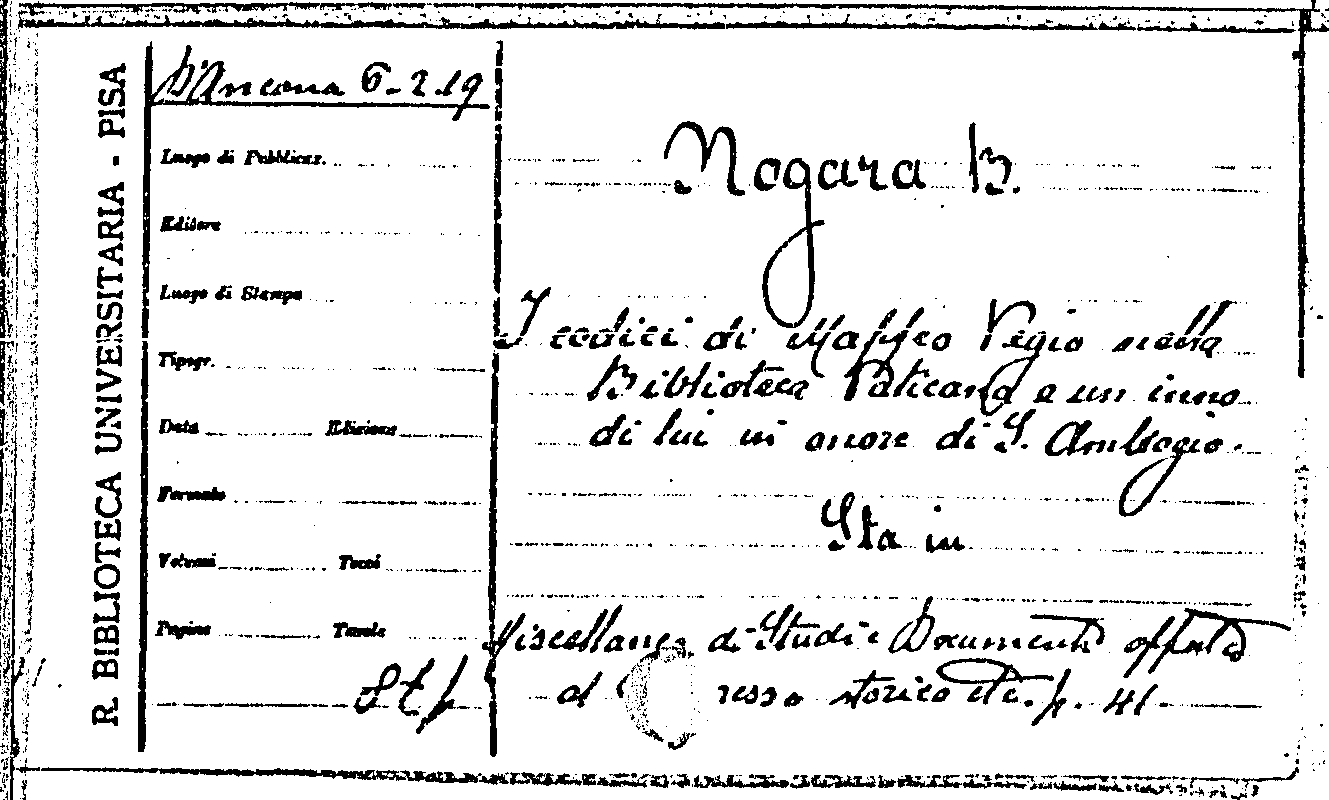 R. BIBLIOTECA UNIVERSITARIA - PISA
D'Ancona 6-2.19
Luogo di Pubblicaz.
Editore
Luogo di Stampa
Tipogr.
Data Edizione
Formato
Volumi Tomi
Pagine Tavole
Nogara B.
I codici di Maffeo Vegio nella
Biblioteca Vaticana e un inno
di lui in onore di S. Ambrogio.
Sta in
Miscellanea di Studi e Documenti offerta
al resso storico etc. p. 41.